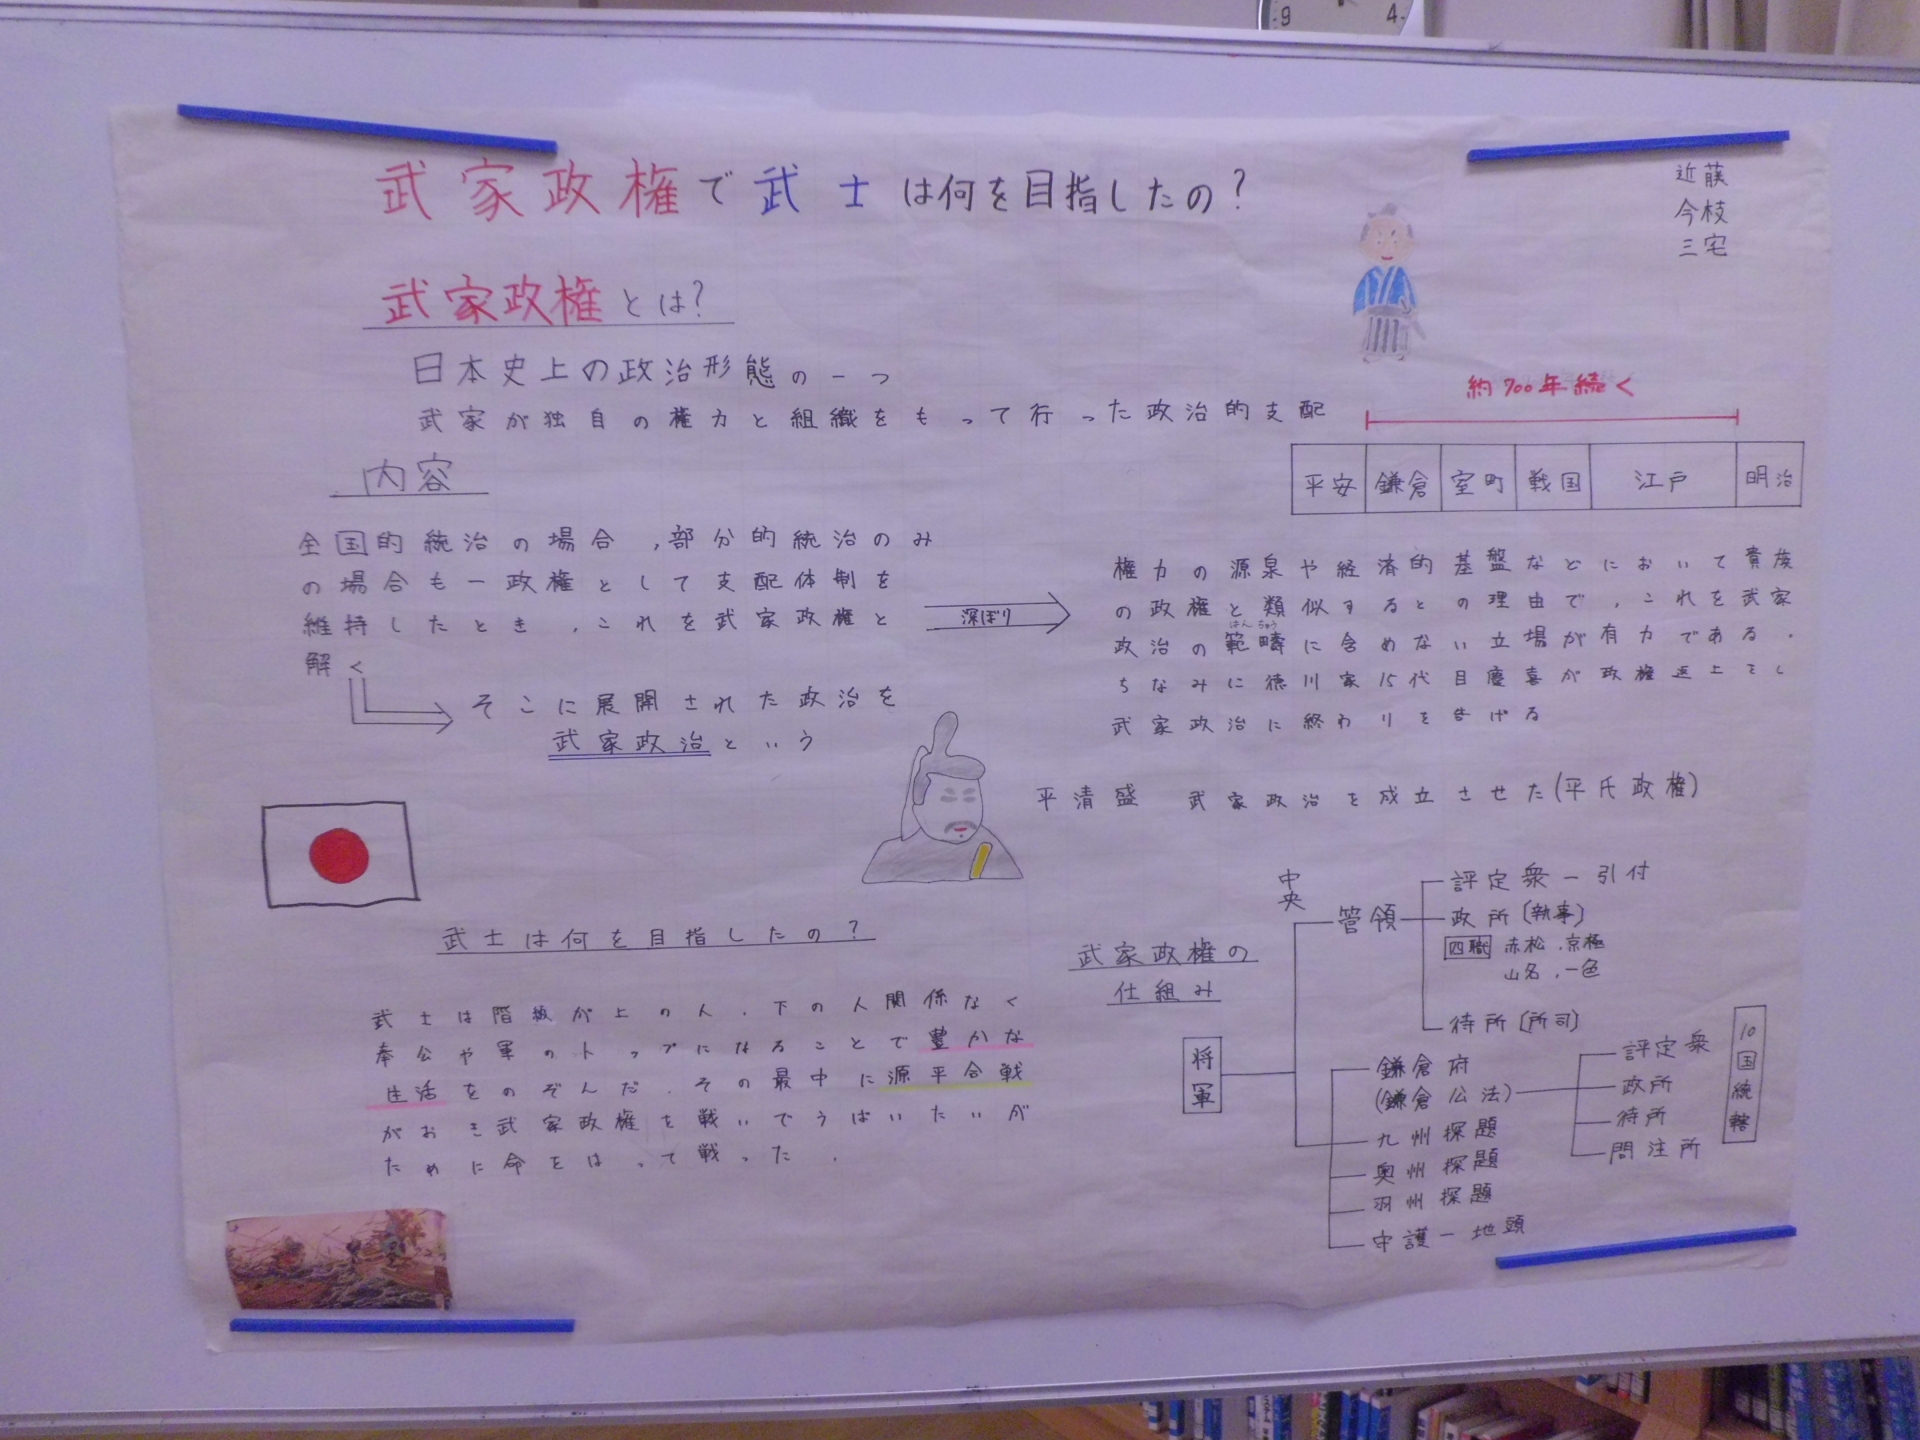 武家政権で武士は何を目指したの?
近藤
今枝
三宅
武家政権とは?
日本史上の政治形態の一つ
武家が独自の権力と組織をもって行った政治的支配
約700年続く
平安 鎌倉 室町 戦国 江戸 明治
内容
全国的統治の場合、部分的統治のみ
の場合も一政権として支配体制を
維持したとき、これを武家政権と
解く
そこに展開された政治を
武家政治という
深ぼり
権力の源泉や経済的基盤などにおいて貴族
の政権と類似するとの理由で、これを武家
はんちゅう
政治の範疇に含めない立場が有力である.
ちなみに徳川家15代目慶喜が政権返上をし
武家政治に終わりを告げる
平清盛 武家政治を成立させた(平氏政権)
武士は何を目指したの?
武士は階級が上の人、下の人関係なく
奉公や軍のトップになることで豊かな
生活をのぞんだ.その最中に源平合戦
がおき武家政権を戦いでうばいたいが
ために命をはって戦った.
武家政権の
仕組み
将軍
中央
管領
評定衆ー引付
政所(執事)
四職 赤松、京極
山名、一色
待所(所司)
鎌倉府
(鎌倉公法)
九州探題
奥州探題
羽州探題
守護ー地頭
評定衆
政所
待所
問注所
10国統轄
9
4